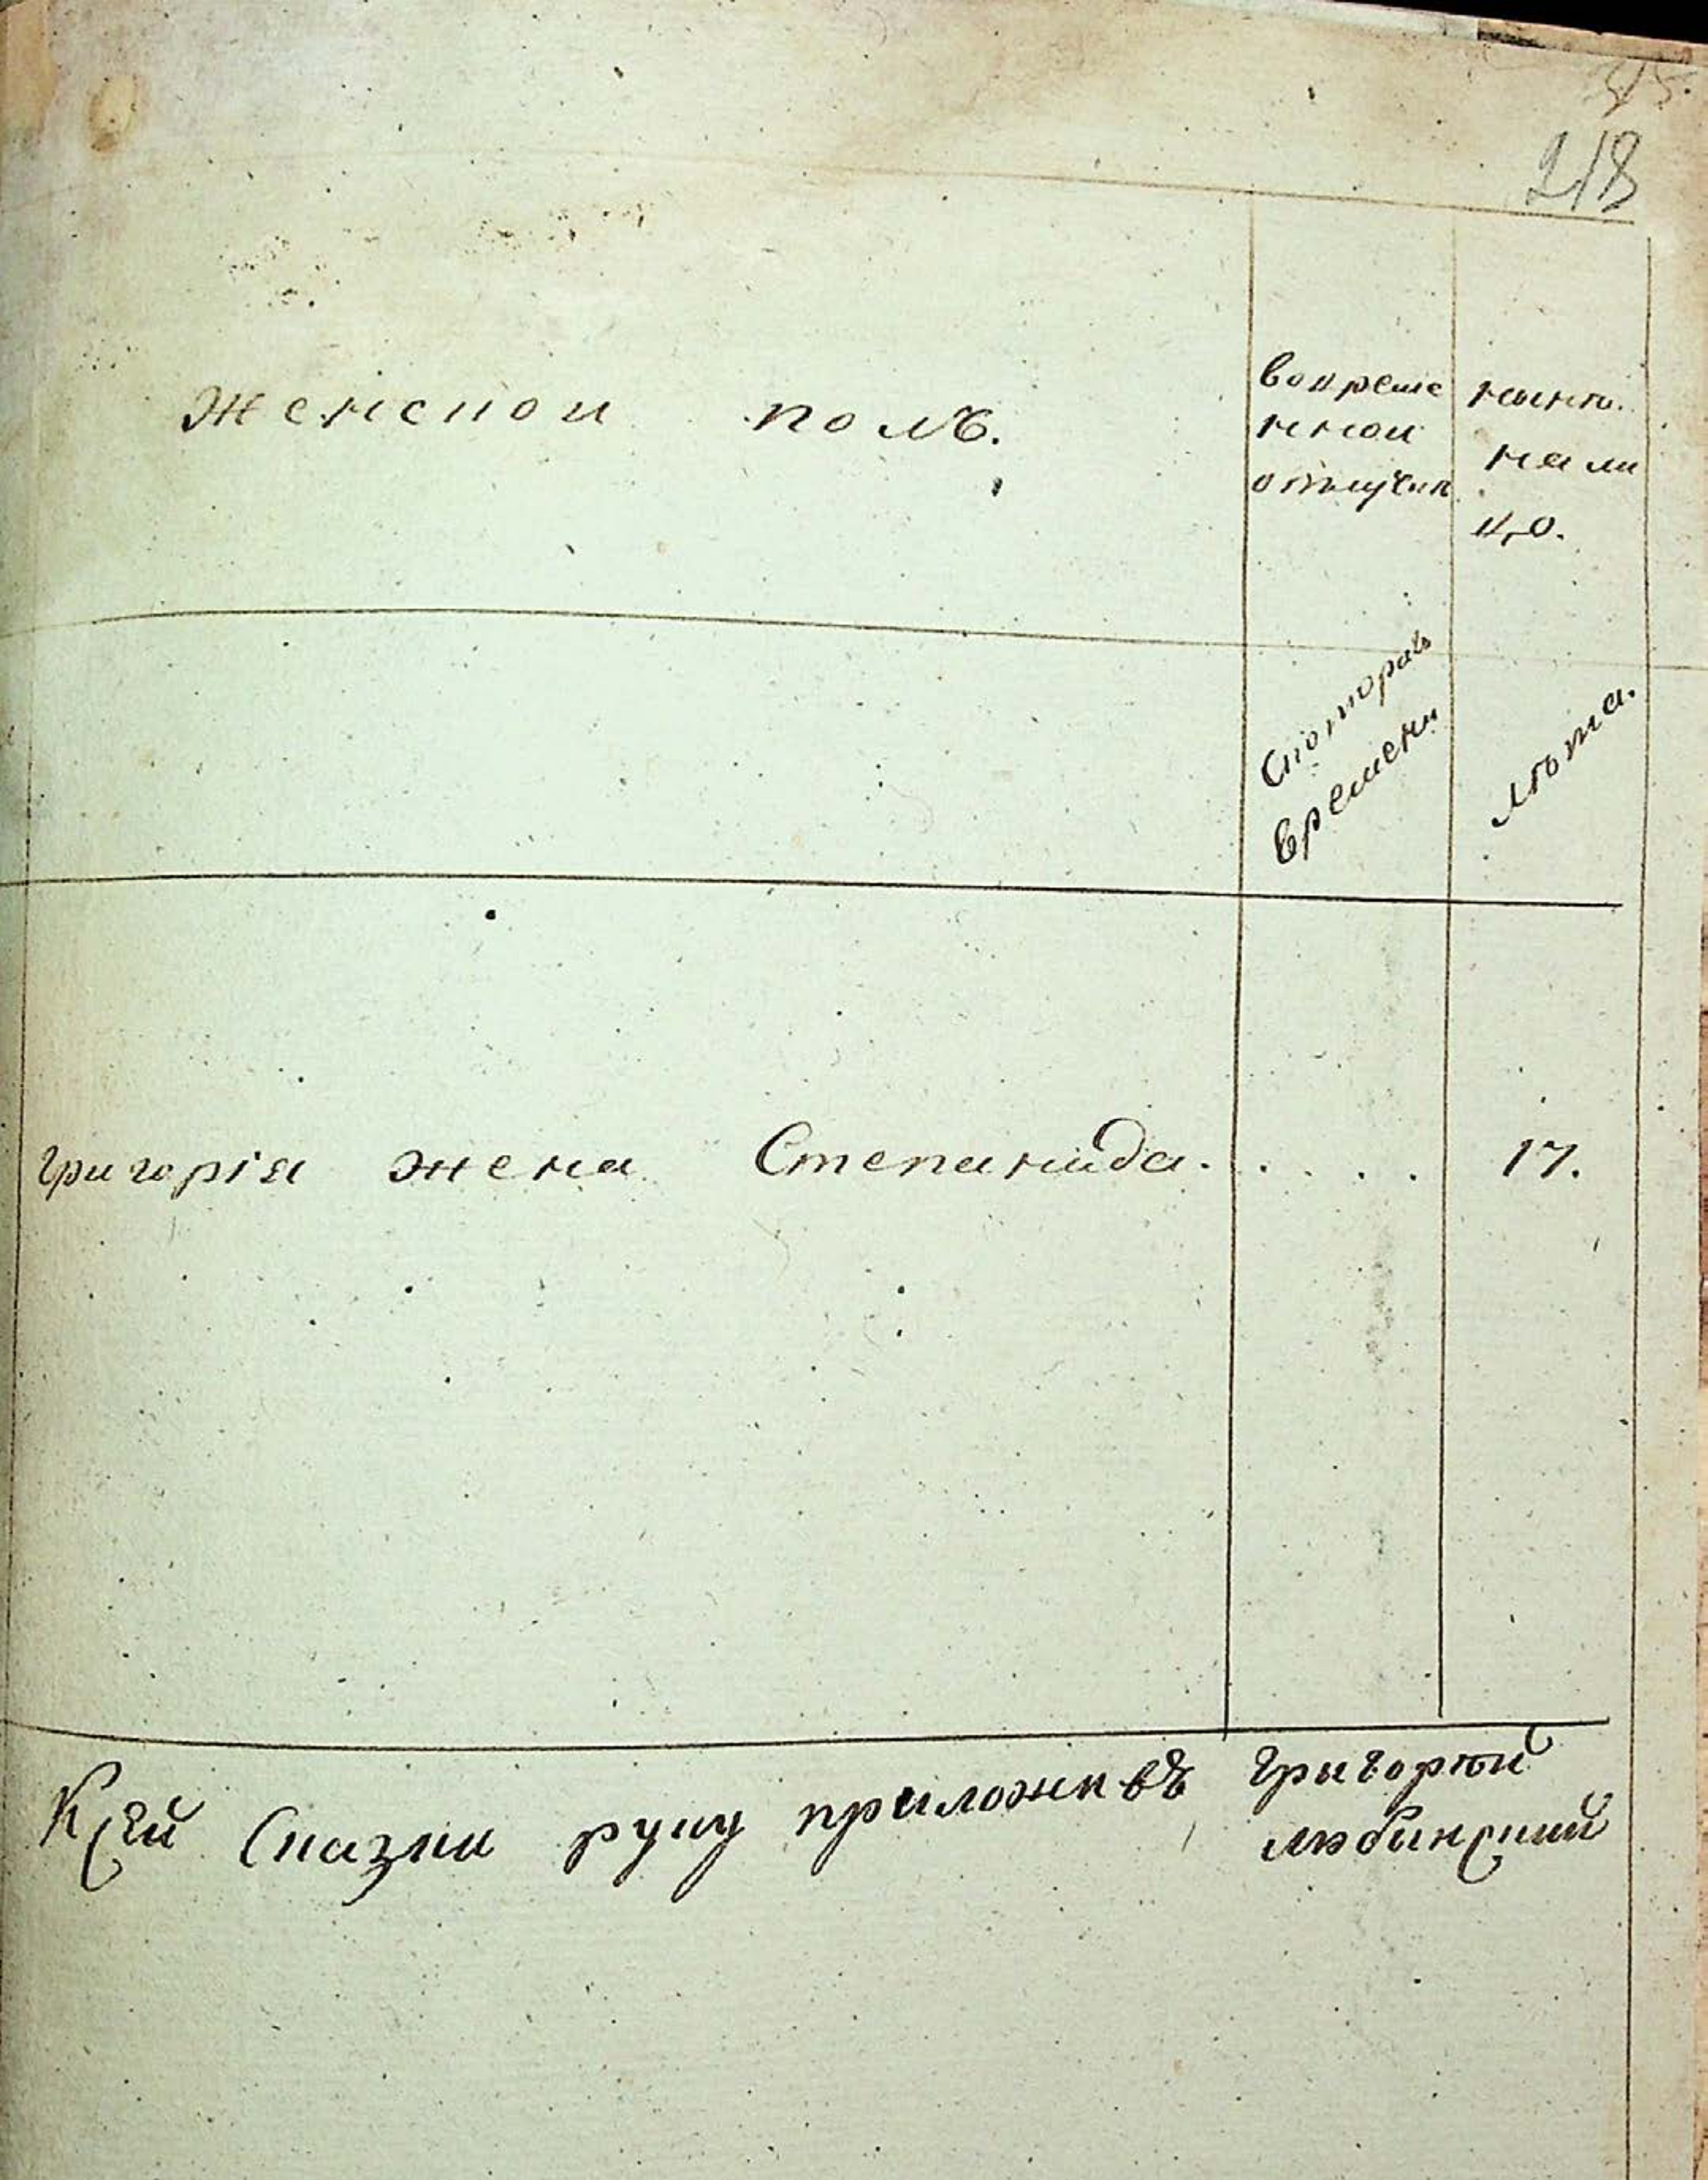 218
Женской полъ.
вовреме
нной
отлучкѣ
нынѣ
на ли
цо.
Скоторого
времени
лѣта.
Григорія жена Степанида. . . . . 17.
Ксей Сказки руку приложивъ Григорій
Любинский